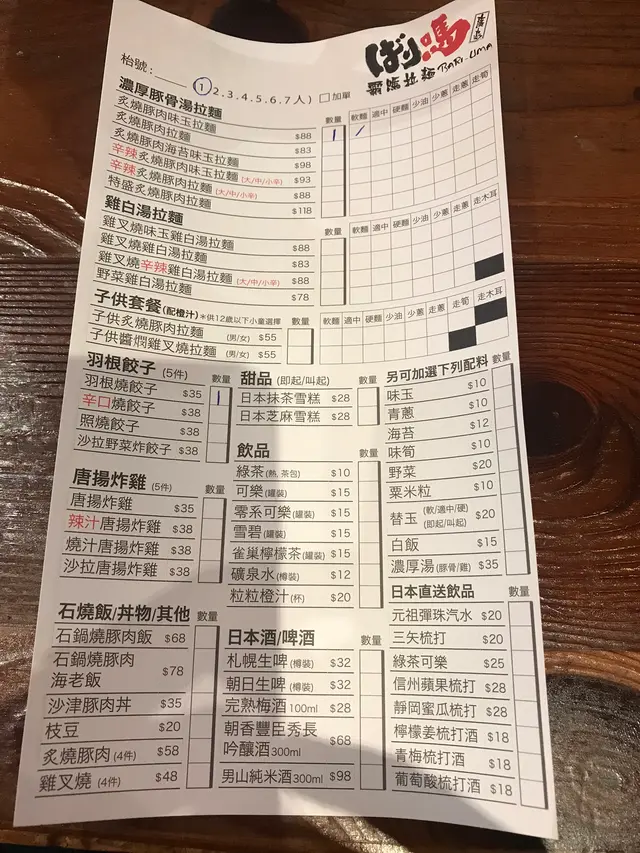 ばり嗎
覇嗎拉麺 BARI-UMA
枱號：____ (1,2,3,4,5,6,7人) □加單
濃厚豚骨湯拉麵 數量 軟麵 適中 硬麵 少油 少蔥 走蔥 走筍
炙燒豚肉味玉拉麵 $88 1 /
炙燒豚肉拉麵 $83
炙燒豚肉海苔味玉拉麵 $98
辛辣炙燒豚肉味玉拉麵 (大/中/小辛) $93
辛辣炙燒豚肉拉麵 (大/中/小辛) $88
特盛炙燒豚肉拉麵 $118
雞白湯拉麵 數量 軟麵 適中 硬麵 少油 少蔥 走蔥 走木耳
雞叉燒味玉雞白湯拉麵 $88
雞叉燒雞白湯拉麵 $83
雞叉燒辛辣雞白湯拉麵 (大/中/小辛) $88
野菜雞白湯拉麵 $78
子供套餐(配橙汁) *供12歲以下小童選擇 數量 軟麵 適中 硬麵 少油 少蔥 走蔥 走筍 走木耳
子供炙燒豚肉拉麵 (男/女) $55
子供醬燜雞叉燒拉麵 (男/女) $55
羽根餃子 (5件) 數量
羽根燒餃子 $35 1
辛口燒餃子 $38
照燒餃子 $38
沙拉野菜炸餃子 $38
唐揚炸雞 (5件) 數量
唐揚炸雞 $35
辣汁唐揚炸雞 $38
燒汁唐揚炸雞 $38
沙拉唐揚炸雞 $38
石燒飯/丼物/其他 數量
石鍋燒豚肉飯 $68
石鍋燒豚肉
海老飯 $78
沙津豚肉丼 $35
枝豆 $20
炙燒豚肉 (4件) $58
雞叉燒 (4件) $48
甜品 (即起/叫起) 數量
日本抹茶雪糕 $28
日本芝麻雪糕 $28
飲品 數量
綠茶(熱, 茶包) $10
可樂(罐裝) $15
零系可樂(罐裝) $15
雪碧(罐裝) $15
雀巢檸檬茶(罐裝) $15
礦泉水(樽裝) $12
粒粒橙汁(杯) $20
日本酒/啤酒 數量
札幌生啤(樽裝) $32
朝日生啤(樽裝) $32
完熟梅酒100ml $28
朝香豐臣秀長
吟釀酒300ml $68
男山純米酒300ml $98
另可加選下列配料 數量
味玉 $10
青蔥 $10
海苔 $12
味筍 $10
野菜 $20
粟米粒 $10
替玉 (軟/適中/硬) (即起/叫起) $20
白飯 $15
濃厚湯(豚骨/雞) $35
日本直送飲品 數量
元祖彈珠汽水 $20
三矢梳打 $20
綠茶可樂 $25
信州蘋果梳打 $28
靜岡蜜瓜梳打 $28
檸檬姜梳打酒 $18
青梅梳打酒 $18
葡萄酸梳打酒 $18